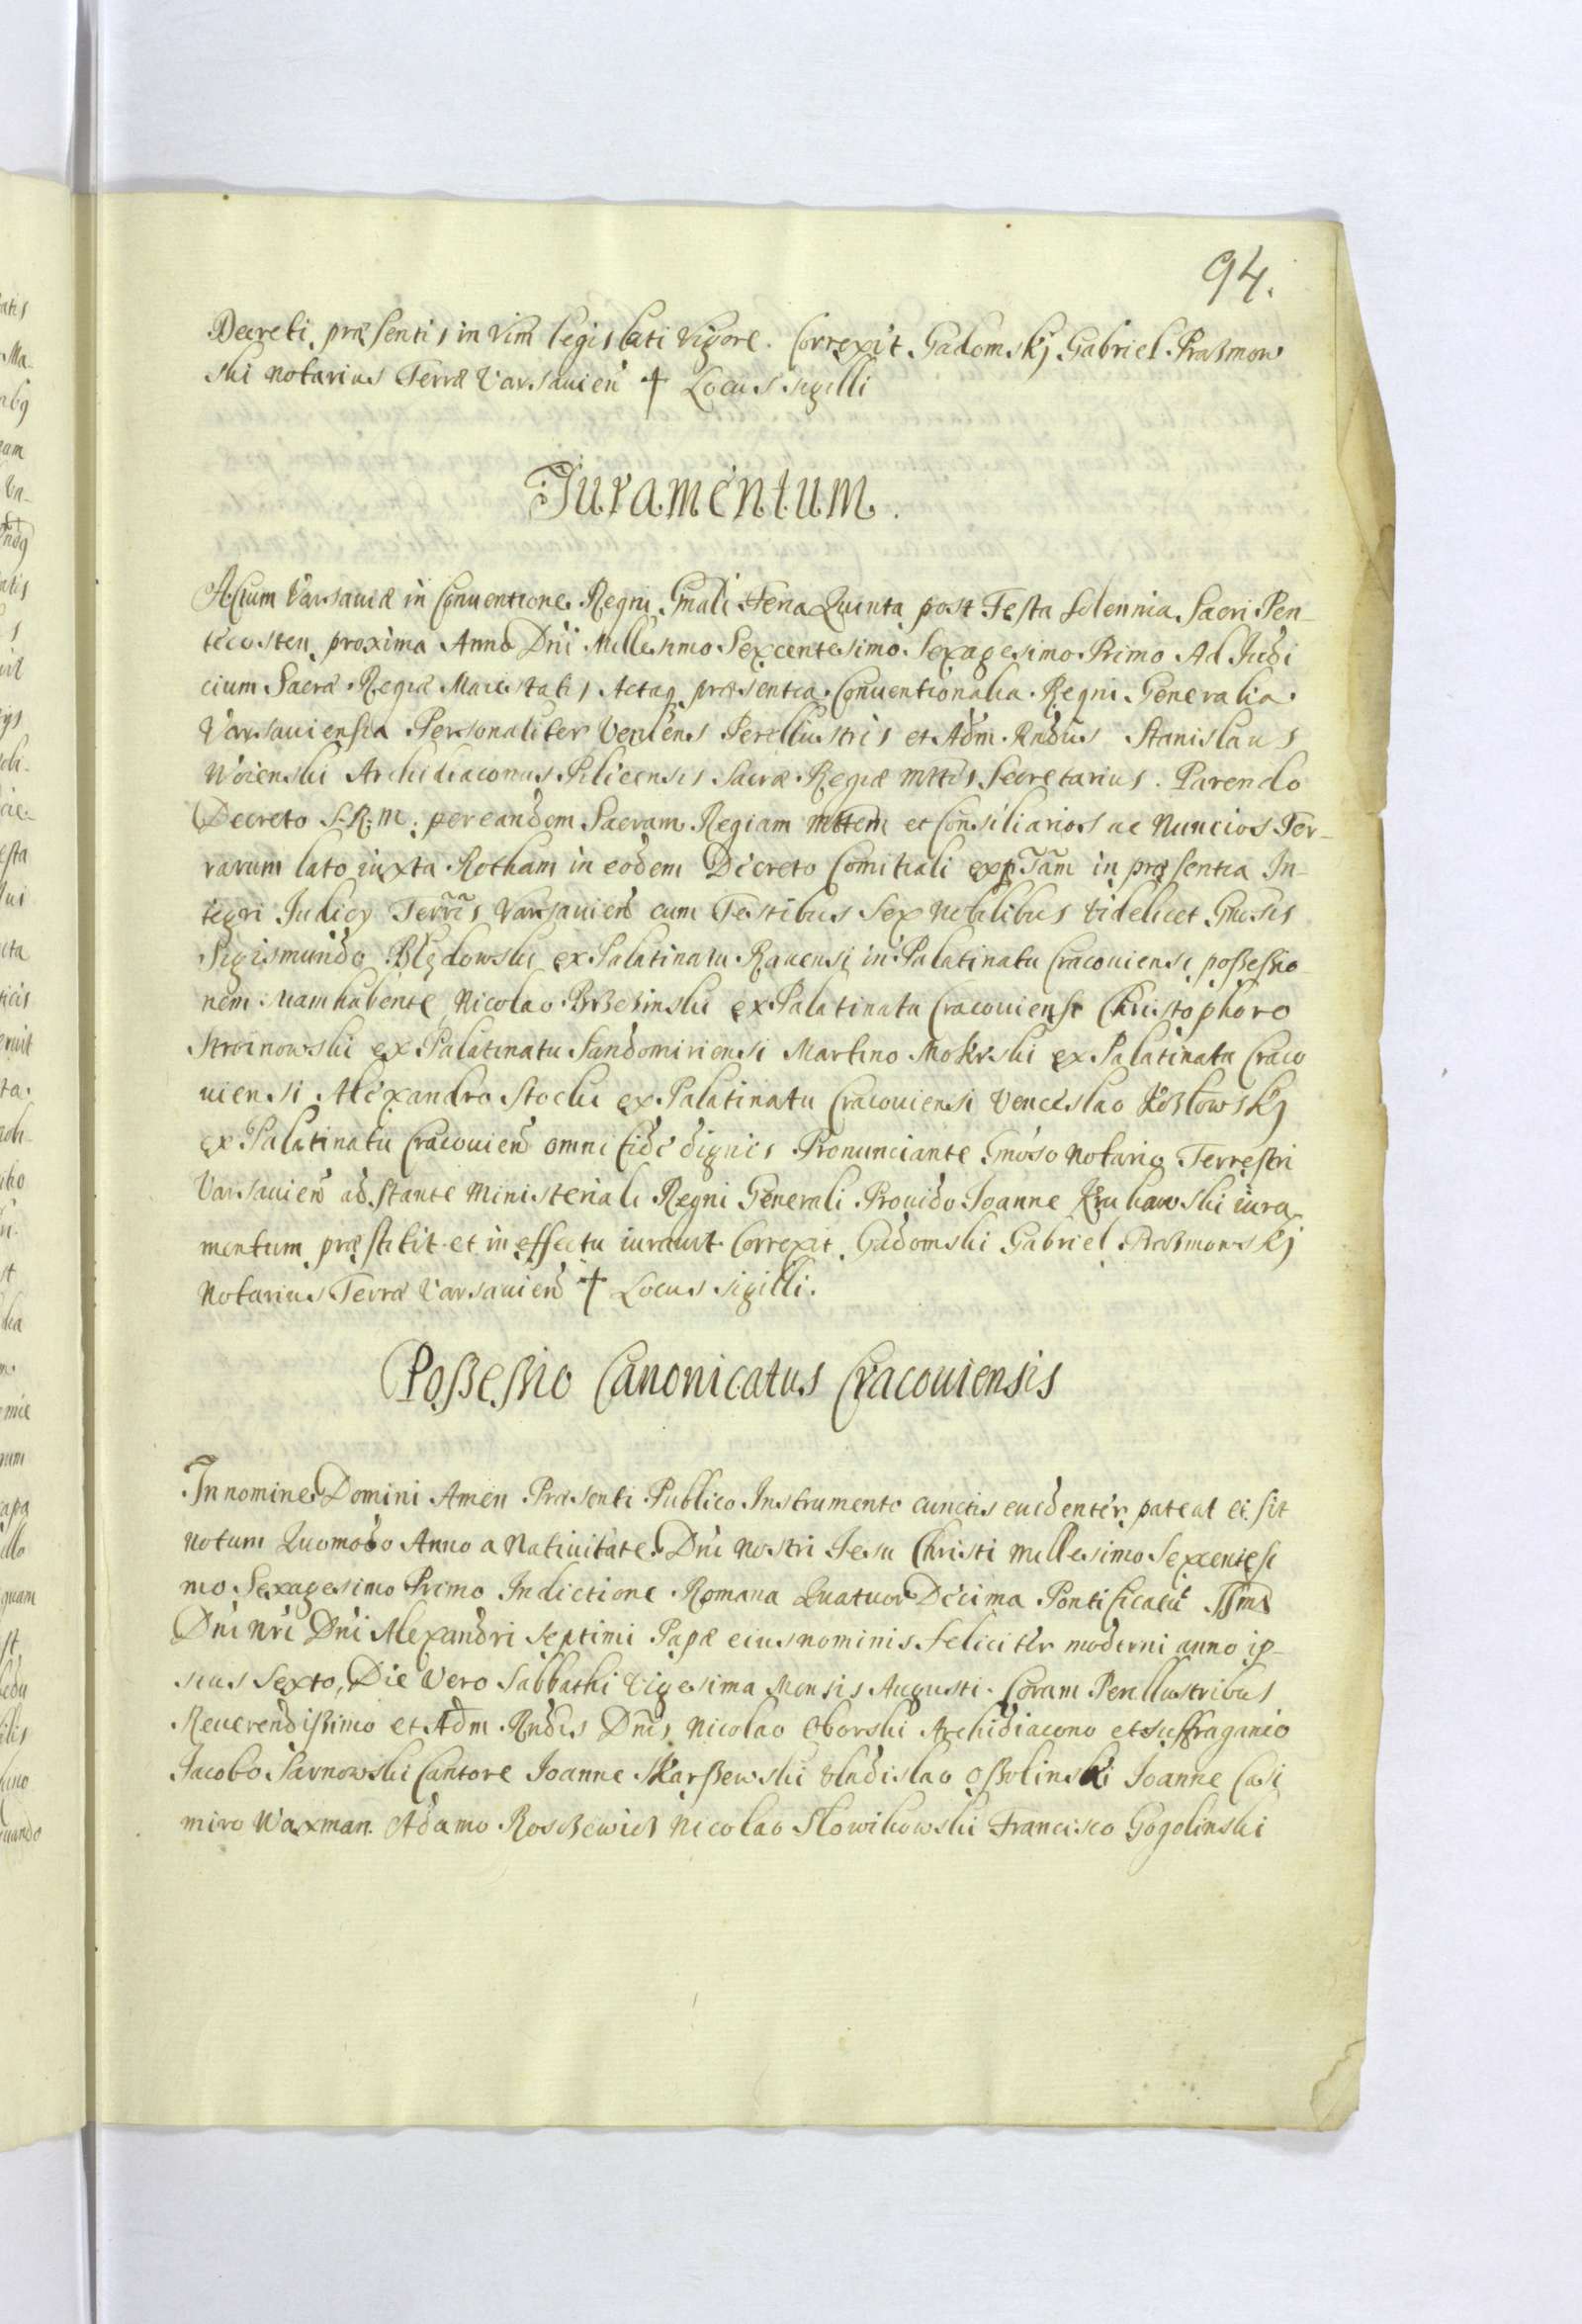 94.
Decreti præsentis in vim legis lati vigore. Correxit Gadomskj Gabriel Praßmow
ski Notarius Terræ Varsauien̄ † Locus sigilli
Juramentum.
Actum Varsauiæ in Conuentione Regni Gn̄ali Feria Quinta post Festa Solennia Sacri Pen-
tecosten proxima Anno Dn̄i Millesimo Sexcentesimo Sexagesimo Primo Ad Judi
cium Sacræ Regiæ Maiestatis Actaq præsentia Conuentionalia Regni Generalia
Varsauiensia Personaliter Veniens Perillustris et Adm. Rn̄dus Stanislaus
Woienski Archidiaconus Pilicensis Sacræ Regiæ Mttis Secretarius. Parendo
Decreto S. R. M. per eandem Sacram Regiam Mttem et Consiliarios ac Nuncios Ter-
rarum lato iuxta Rotham in eodem Decreto Comitiali exp̄tam in præsentia In-
tegri Judicy Terrīs Varsauien̄ cum Testibus Sex Nobilibus videlicet Gn̄osis
Sigismundo Błędowski ex Palatinatu Rauensi in Palatinatu Cracouiensi possessio
nem suam habente, Nicolao Brzezinski ex Palatinatu Cracouiensi Christophoro
Stroinowski ex Palatinatu Sandomiriensi Martino Mokrski ex Palatinatu Craco
uiensi Alexandro Stocki ex Palatinatu Cracouiensi Venceslao Kozłowskj
ex Palatinatu Cracouien̄ omni fide dignis Pronunciante Gn̄oso Notario Terrestri
Varsauien̄ adstante Ministeriali Regni Generali Prouido Joanne Krukowski iura-
mentum præstitit et in effectu iurauit Correxit Gadomski Gabriel Praßmowskj
Notarius Terræ Varsauien̄ † Locus sigilli.
Poßeßio Canonicatus Cracouiensis
In nomine Domini Amen Præsenti Publico Instrumento cunctis euidenter pateat et sit
notum Quomodo Anno a Natiuitate Dn̄i Nostri Jesu Christi Millesimo Sexcentesi
mo Sexagesimo Primo Indictione Romana Quatuor Decima Pontificatū SSmi
Dn̄i Nr̄i Dn̄i Alexandri Septimi Papæ eius nominis feliciter moderni anno ip-
sius Sexto, Die Vero Sabbathi Vigesima Mensis Augusti. Coram Perillustribus
Reuerendißimo et Adm Rn̄dis Dn̄is Nicolao Oborski Archidiacono et suffraganeo
Jacobo Sarnowski Cantore Joanne Skarßewski Vladislao Oßolinski Joanne Casi
miro Waxman Adamo Roscißewicz Nicolao Słowikowski Francisco Gogolinski